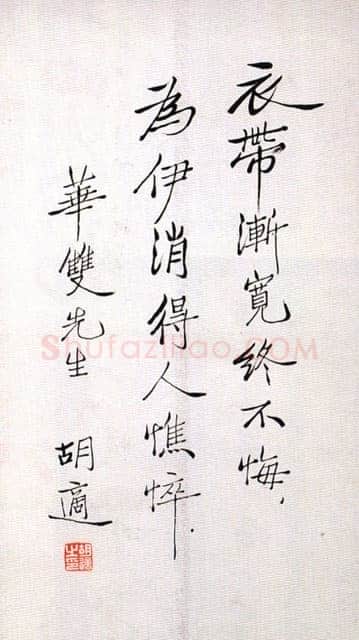 衣帶漸寬終不悔，
為伊消得人憔悴．
華雙先生
胡適
胡適之印
ShufaZiliao.COM